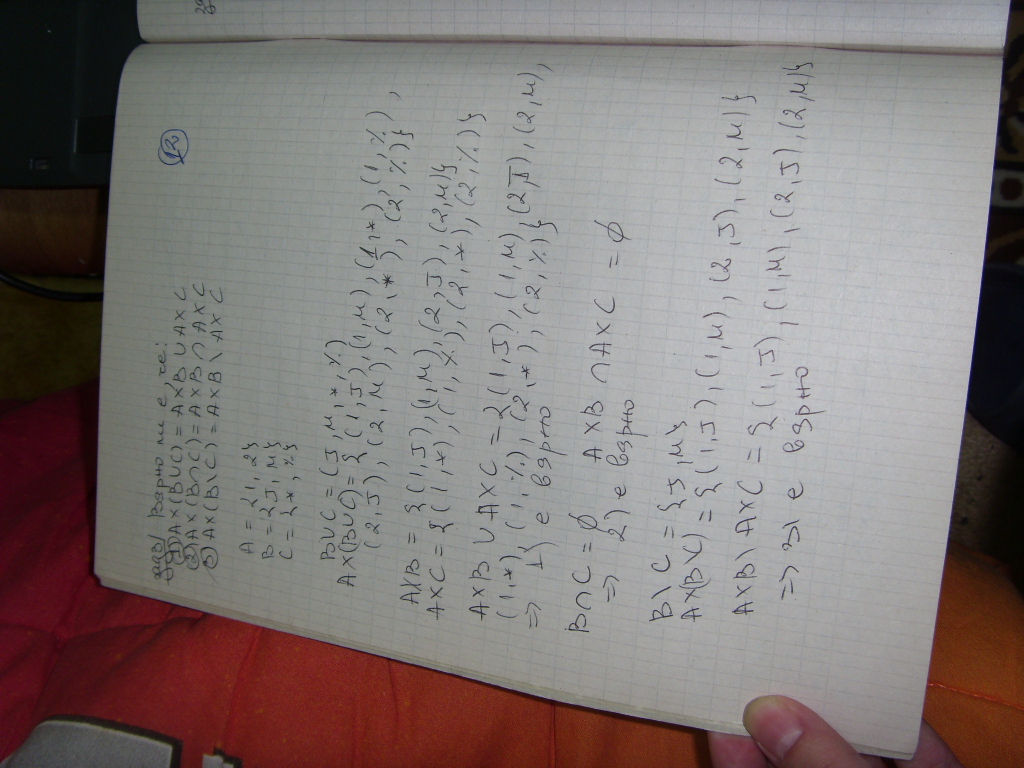 12
Вярно ли е, че:
1) A×(B∪C) = A×B ∪ A×C
2) A×(B∩C) = A×B ∩ A×C
3) A×(B\C) = A×B \ A×C
A = {1, 2}
B = {J, M}
C = {*, %}
B∪C = (J, M, *, %)
A×(B∪C) = { (1, J), (1, M), (1, *), (1, %),
(2, J), (2, M), (2, *), (2, %)}
A×B = { (1, J), (1, M), (2, J), (2, M)}
A×C = {(1, *), (1, %), (2, *), (2, %)}
A×B ∪ A×C = {(1, J), (1, M), (2, J), (2, M),
(1, *), (1, %), (2, *), (2, %)}
=> 1) е вярно
B∩C = ∅ A×B ∩ A×C = ∅
=> 2) е вярно
B\C = {J, M}
A×(B\C) = { (1, J), (1, M), (2, J), (2, M)}
A×B\A×C = { (1, J), (1, M), (2, J), (2, M)}
=> 3) е вярно